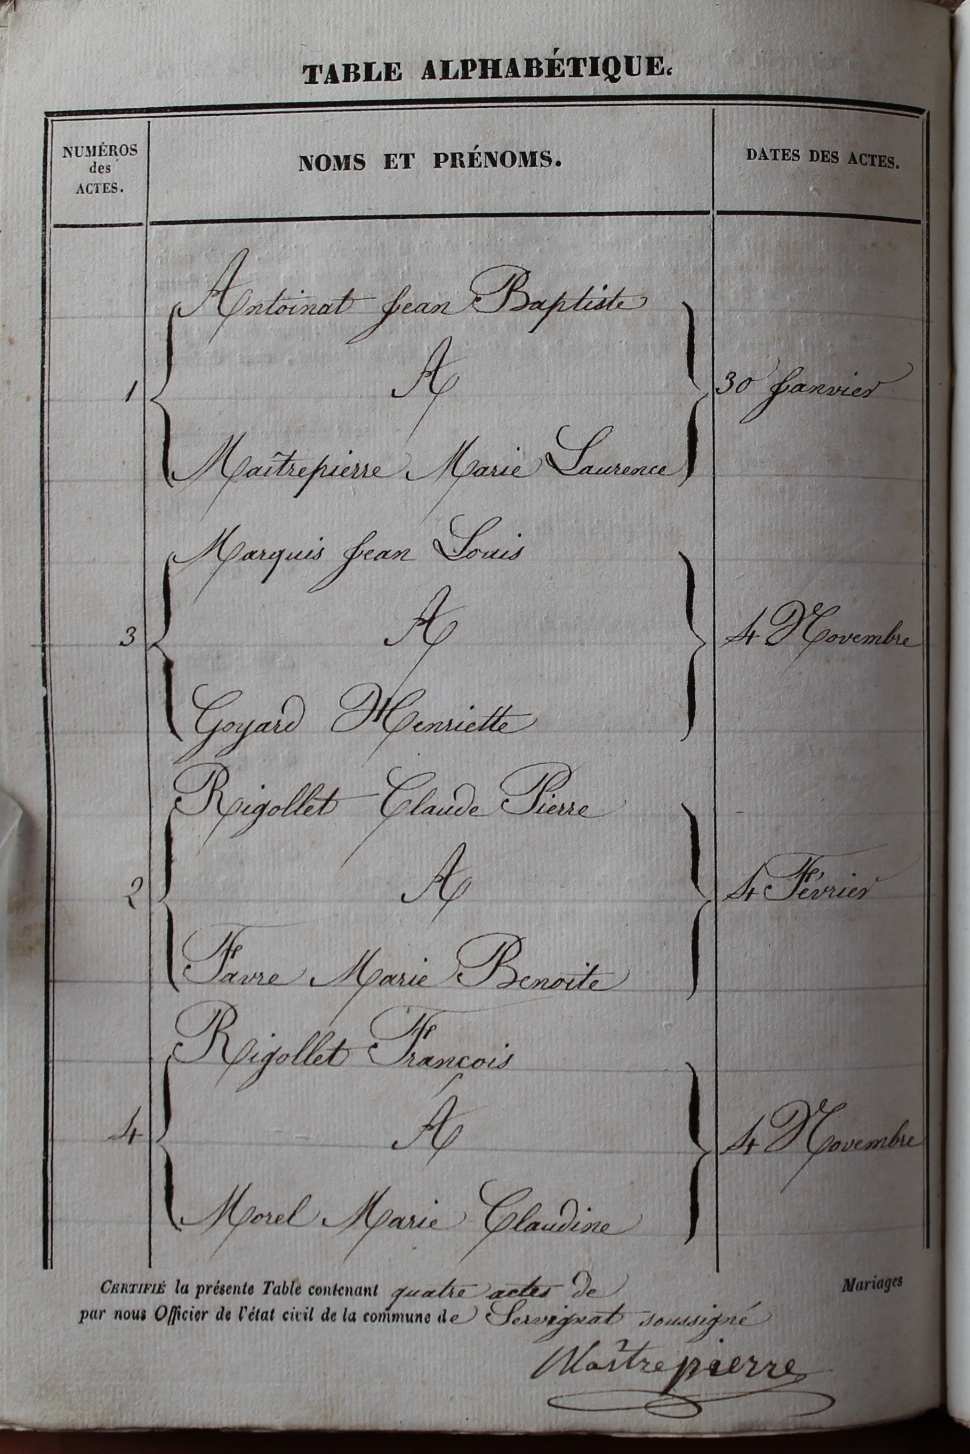 TABLE ALPHABÉTIQUE.
NUMÉROS
des
ACTES.
NOMS ET PRÉNOMS.
DATES DES ACTES.
Antoinat Jean Baptiste
1 A 30 Janvier
Maîtrepierre Marie Laurence
Marquis Jean Louis
3 A 4 Novembre
Goyard Henriette
Rigollet Claude Pierre
2 A 4 Février
Favre Marie Benoite
Rigollet François
4 A 4 Novembre
Morel Marie Claudine
CERTIFIÉ la présente Table contenant quatre actes de Mariages
par nous Officier de l'état civil de la commune de Servignat soussigné
Maîtrepierre